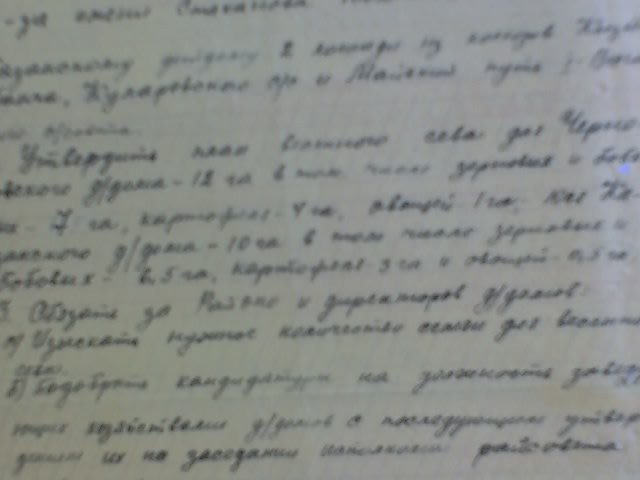 -за
Казанскому детдому 2 лошади из колхозов
Кумаровского с/с и Майский путь
Утвердить план весеннего сева для Черно
вского д/дома - 12 га в том числе зерновых и бобо
ых - 7 га, картофеля - 4 га, овощей - 1 га, Ка
занского д/дома - 10 га в том числе зерновых и
бобовых - 6,5 га, картофеля - 3 га и овощей - 0,5 га.
3. Обязать за Районо и директоров д/домов:
а) Изыскать нужное количество семян для весенне
сева.
б) Подобрать кандидатуры на должность завед
ющих хозяйствами д/домов с последующим утвер
дением их на заседании исполкома райсовета